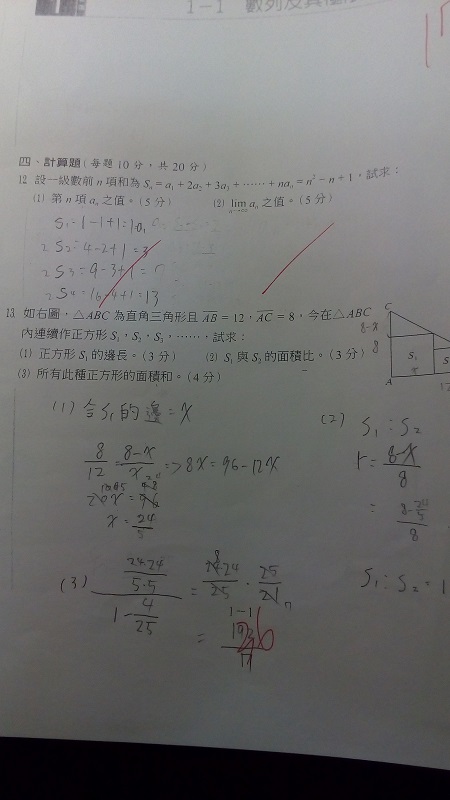 1-1 數列及其極
四、計算題(每題10分,共20分)
12 設一級數前 n 項和為 Sₙ = a₁ + 2a₂ + 3a₃ + …… + naₙ = n² − n + 1,試求:
(1) 第 n 項 aₙ 之值。(5分) (2) lim aₙ 之值。(5分)
n→∞
S₁=1-1+1=1
S₂=4-2+1=3
S₃=9-3+1=
S₄=16-4+1=13
13 如右圖,△ABC 為直角三角形且 AB = 12,AC = 8,今在△ABC
內連續作正方形 S₁、S₂、S₃、……,試求:
(1) 正方形 S₁ 的邊長。(3分) (2) S₁ 與 S₂ 的面積比。(3分)
(3) 所有此種正方形的面積和。(4分)
C
8-x
8
S₁
A
12
(1) 令S₁的邊=x
8/12 = (8-x)/x => 8x=96-12x
x = 24/5
(2) S₁:S₂
r = (8-x)/8
= (8-24/5)/8
S₁:S₂ = 1
(3) (24·24/5·5)/(1-4/25) = 24·24/25 · 25/21
=
1-1
26